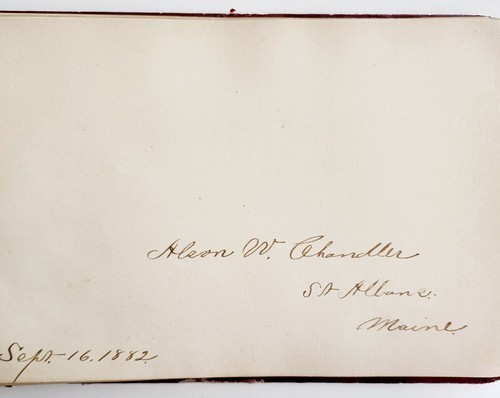 Alson W. Chandler
St Albans.
Maine.
Sept. 16. 1882.